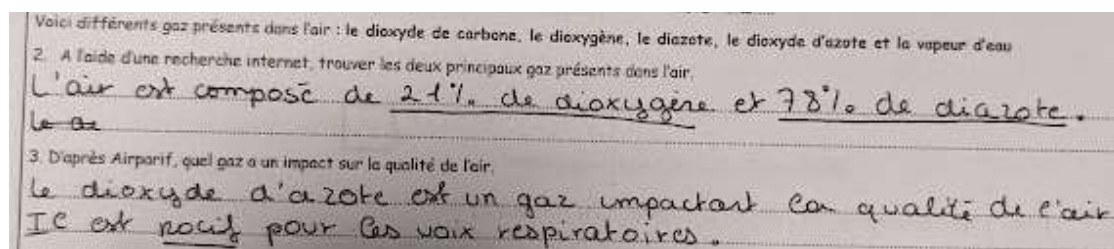 Voici différents gaz présents dans l'air : le dioxyde de carbone, le dioxygène, le diazote, le dioxyde d'azote et la vapeur d'eau
2. A l'aide d'une recherche internet, trouver les deux principaux gaz présents dans l'air.
L'air est composé de 21% de dioxygène et 78% de diazote.
3. D'après Airparif, quel gaz a un impact sur la qualité de l'air.
Le dioxyde d'azote est un gaz impactant la qualité de l'air
Il est nocif pour les voix respiratoires.